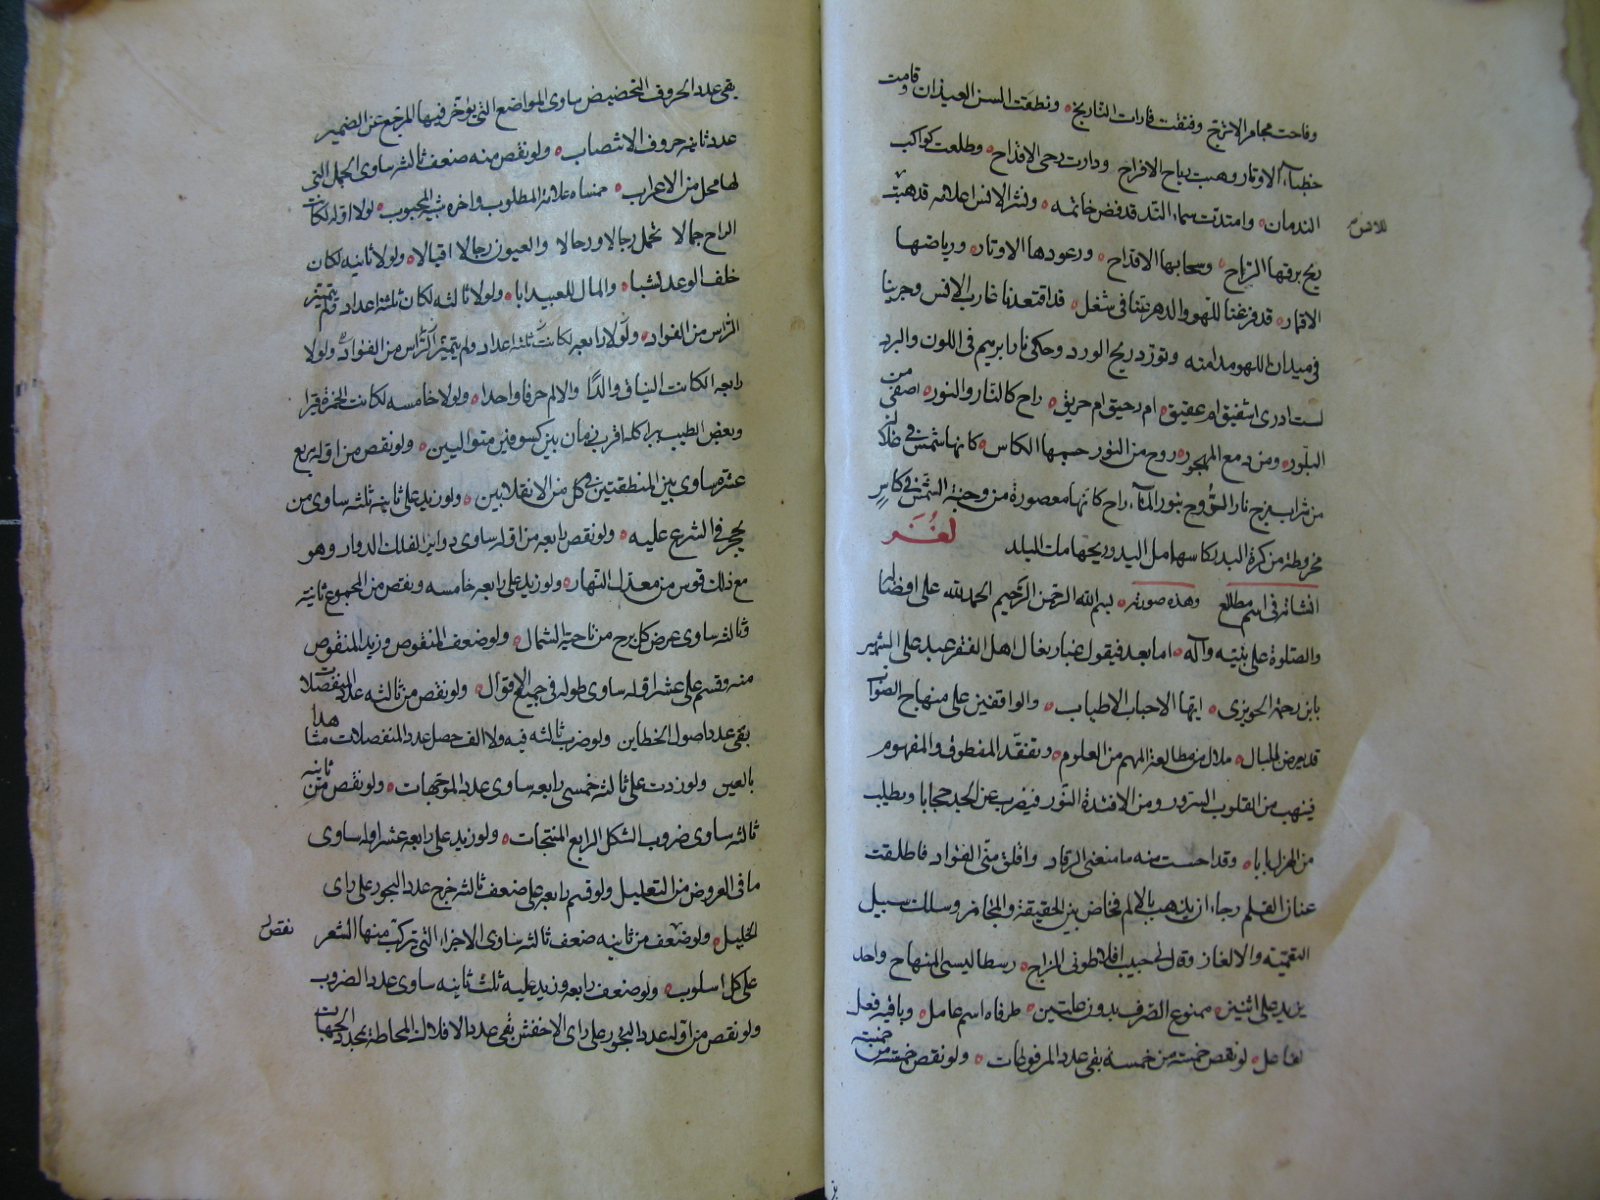 وفاحت مجامر الاترج وفتقت فارات النارنج ونطقت السن العيدان وقامت
خطباء الاوتار وهبت رياح الافراح ودارت رحى الاقداح وطلعت كواكب
الندمان وامتدت سماء الند قد فض خاتمه ونشر الانس اعلامه قد هبت
للانس
ريح برقها الراح وسحابها الاقداح ورعودها الاوتار ورياضها
الاقمار قد فرغنا للهو والدهر عنا في شغل قد اقتعدنا غارب الانس وجرينا
في ميدان اللهو مدامنه وتورد ريح الورد وحكى نار ابرهيم في اللون والبرد
لست ادرى اشقيق ام عقيق ام رحيق ام حريق راح كالنار والنور اصفى من
البلور ومن دمع المهجور روح من النور جسمها الكاس كانها شمس في
من شراب يمزج نار الروح بنور الماء راح كانها معصورة من وجنة الشمس في كاس
مخروطة من كرة البدر كاسها مل اليد وريحها مل البلد
لغز
انشاته في اسم مطالع وهذه صورته بسم الله الرحمن الرحيم الحمد لله على افضاله
والصلوة على نبيه وآله اما بعد فيقول غبار نعال اهل الفقر عبد على الشهير
بابن رحمة الحويزى ايها الاحباب الاطياب والواقفين على منهاج الصواب
قد يعرض للبال ملال من مطالعة المهم من العلوم وتفقد المنطوق والمفهوم
فينهب من القلوب السرور ومن الافئدة النور فيضرب عن الجد حجابا ويطلب
من الهزل بابا وقد احسست منه ما منعنى الرقاد واقلق منى الفؤاد فاطلقت
عنان القلم رجاء ان يذهب بالالم فخاض بين الحقيقة والمجاز وسلك سبيل
التعمية والالغاز وقال لى حبيب افلاطونى المزاج رسطاليسى المنهاج واحد
يزيد على اثنين ممنوع الصرف بدون علتين طرفاه اسم عامل وباقيه فعل
لفاعل لو نقص خمسة من خمسة بقى عدد المرفوعات ولو نقص خمسة من خمسة
بقى عدد الحروف التحضيض ساوى المواضع التى يؤخر فيها المرجع عن الضمير
عدد ثانيه حروف الانتصاب ولو نقص منه ضعف ثالثه ساوى الجمل التى
لها محل من الاعراب خمساه علامة المطلوب واخره شبيه المحبوب لولا اوله لكانت
الراح جمالا تحمل رجالا ورحالا والعيون رجالا اقبالا ولولا ثانيه لكان
خلف الوعد لشبا والمال للعبيد ابا ولولا ثالثه لكان ثلثة اعداد ولم يتميز
الراس من الفؤاد ولولا رابعه لكانت ثلثه اعداد ولم يتميز الراس من الفؤاد ولولا
رابعه لكانت النياق والدا والالم حرفا واحدا ولولا خامسه لكانت الخمرة قرا
وبعض الطيب براكله اقرب زمان بين كسوفين متواليين ولو نقص من اوله ربع
عشره ساوى بين المنطقتين في كل من الانقلابين ولو زيد على ثانيه ثلثه ساوى من
يحجر في الشرع عليه ولو نقص رابعه من اوله ساوى دواير الفلك الدوار وهو
مع ذلك قوس من معدل النهار ولو زيد على رابعه خامسه ونقص من المجموع ثانيه
وثالثه ساوى عرض كل برج من ناحية الشمال ولو ضعف المنقوص وزيد المنقوص
منه وقسم على عشر اوله ساوى طوله في جميع الاقوال ولو نقص من ثالثه عدد المنفصلات
بقى عدد اصول الخطاين ولو ضرب ثالثه فيه ولا الف حصل عدد المنفصلات هذا
بالعين ولو زدت على ثالثه خمسى رابعه ساوى عدد الموجهات ولو نقص من ثانيه
ثالثه ساوى ضروب الشكل الرابع المنتجات ولو زيد على رابعه عشر اوله ساوى
ما في العروض من التعليل ولو قسم رابعه على ضعف ثالثه خرج عدد البحور على راى
الخليل ولو ضعف من ثانيه ضعف ثالثه ساوى الاجزاء التى تركب منها الشعر
نقص
على كل اسلوب ولو ضعف رابعه وزيد عليه ثلث ثانيه ساوى عدد الضروب
ولو نقص من اوله عدد البحور على راى الاخفش بقى عدد الافلاك المحاطة بمحدد الجهات